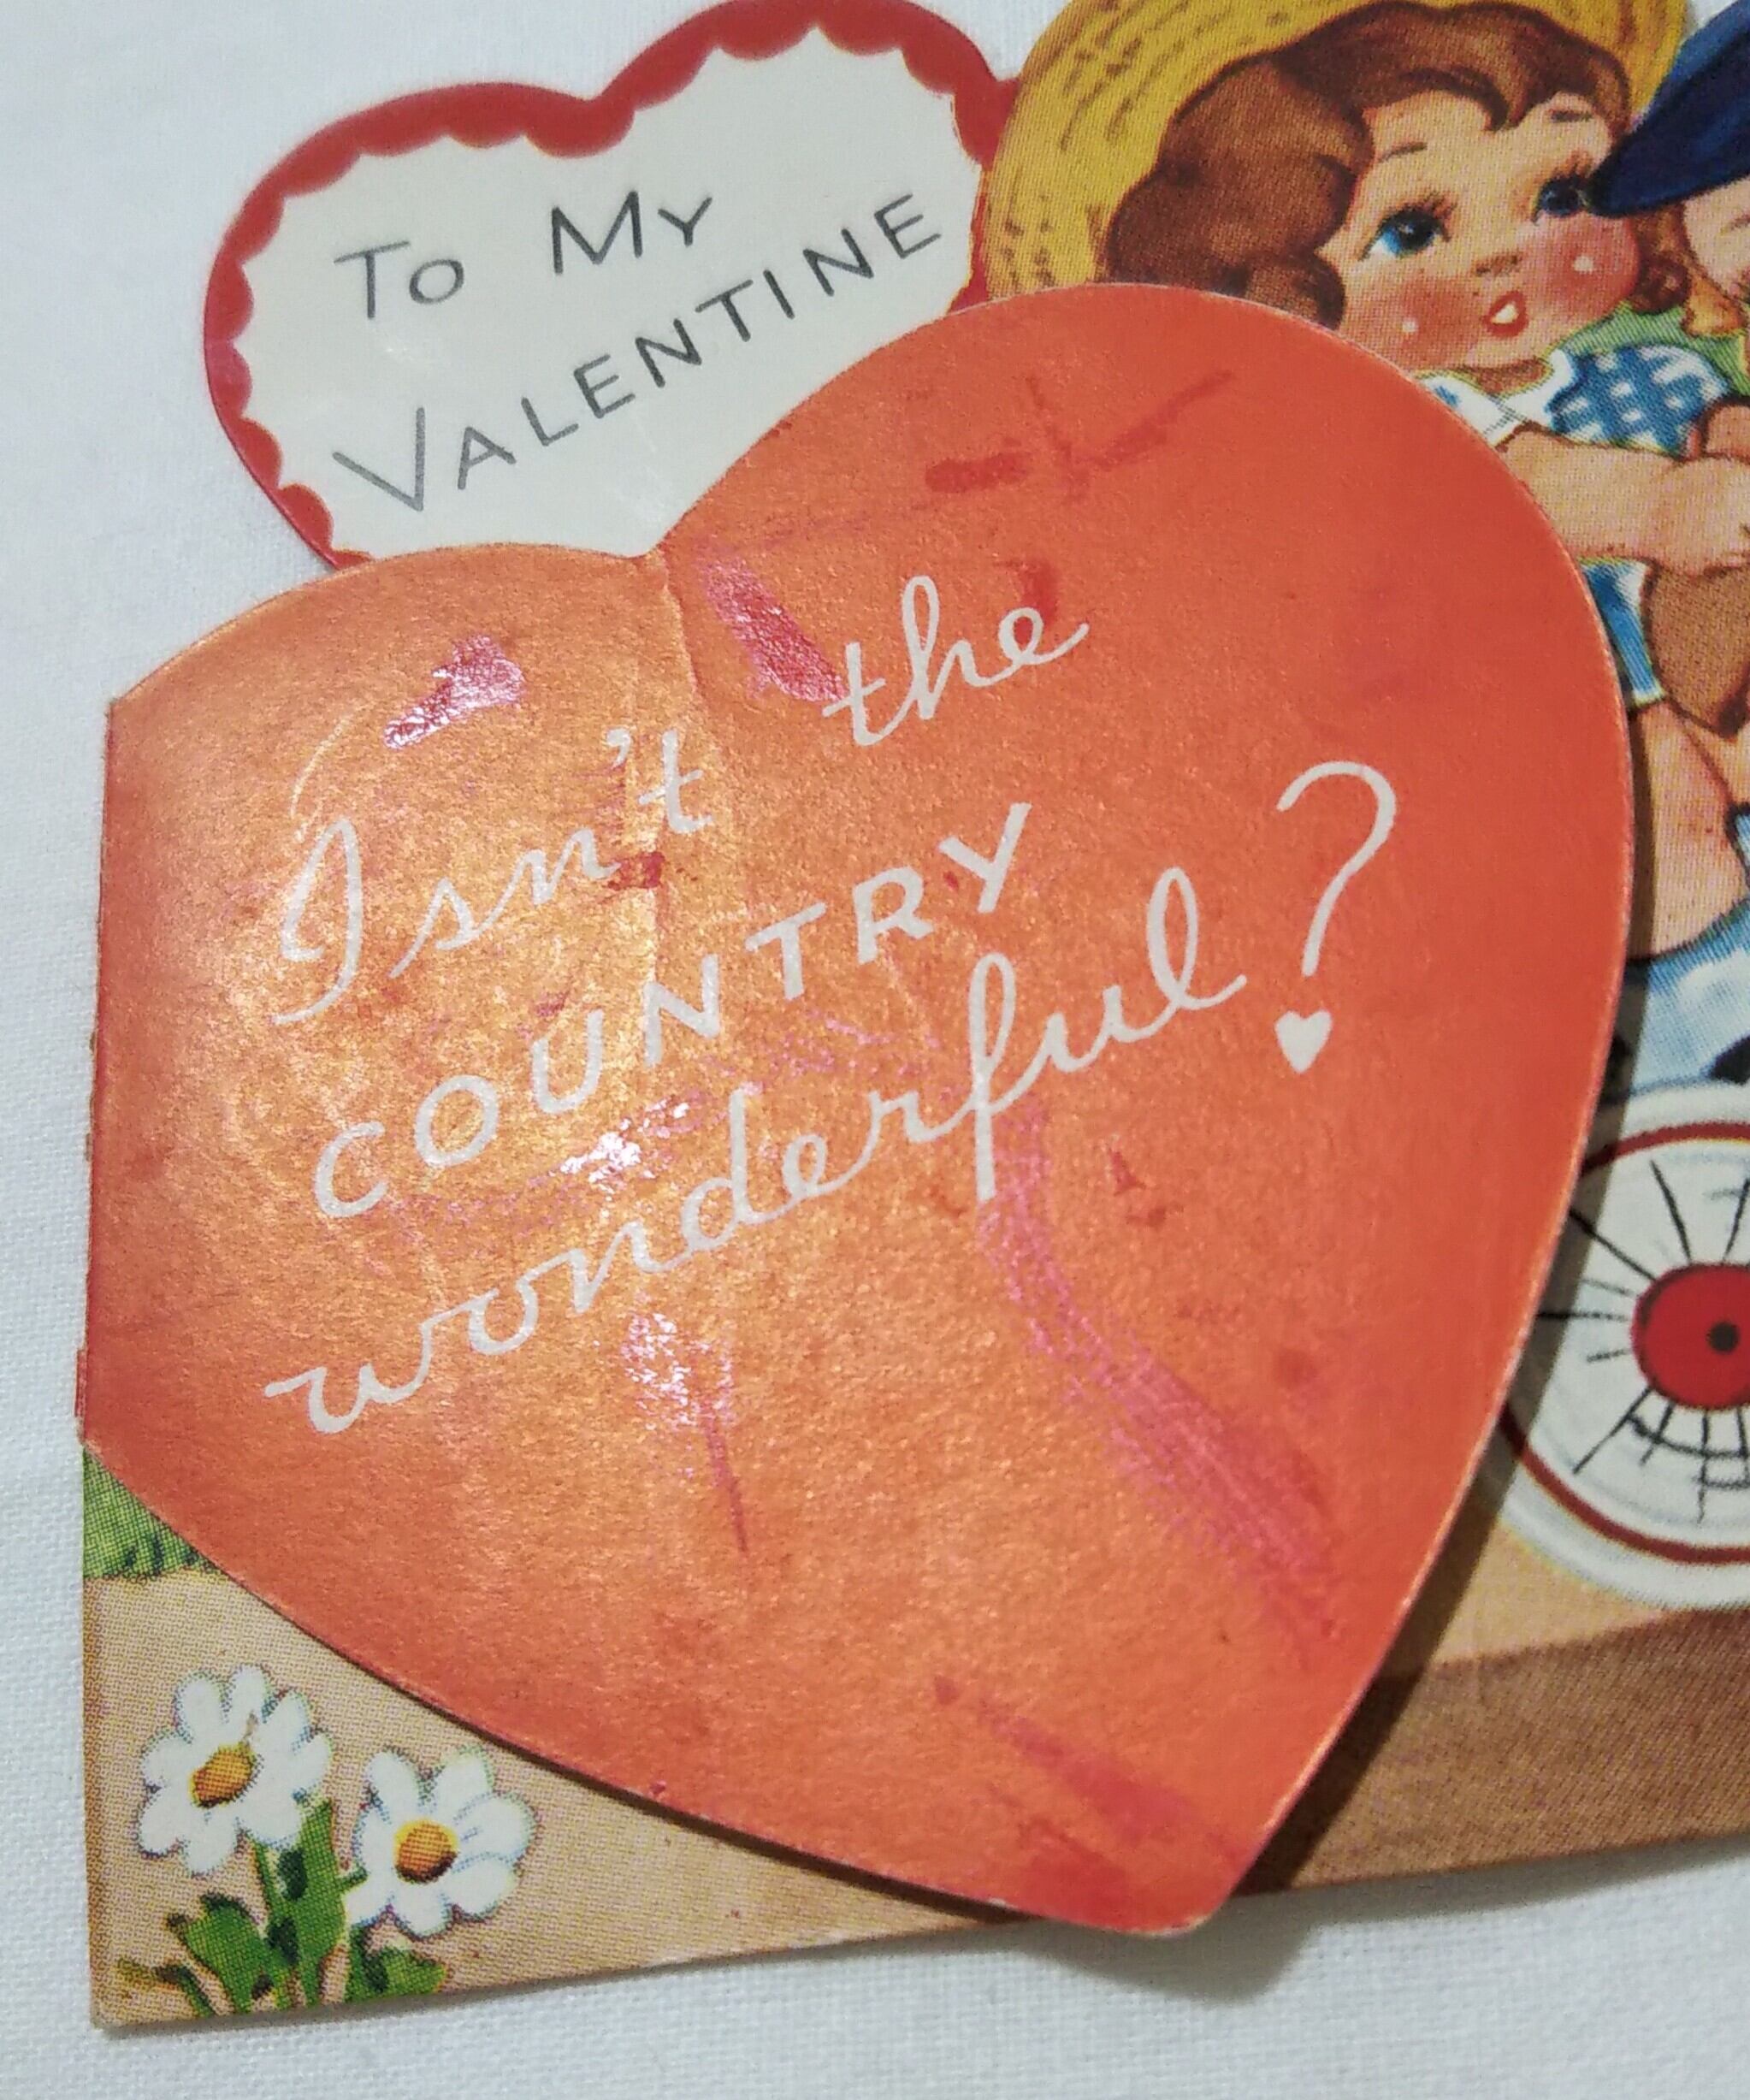 To My
VALENTINE
Isn't the
COUNTRY
wonderful?